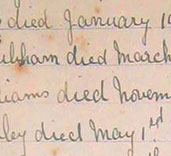 died January 1
ibham died March
iams died Novem
ley died May 1st